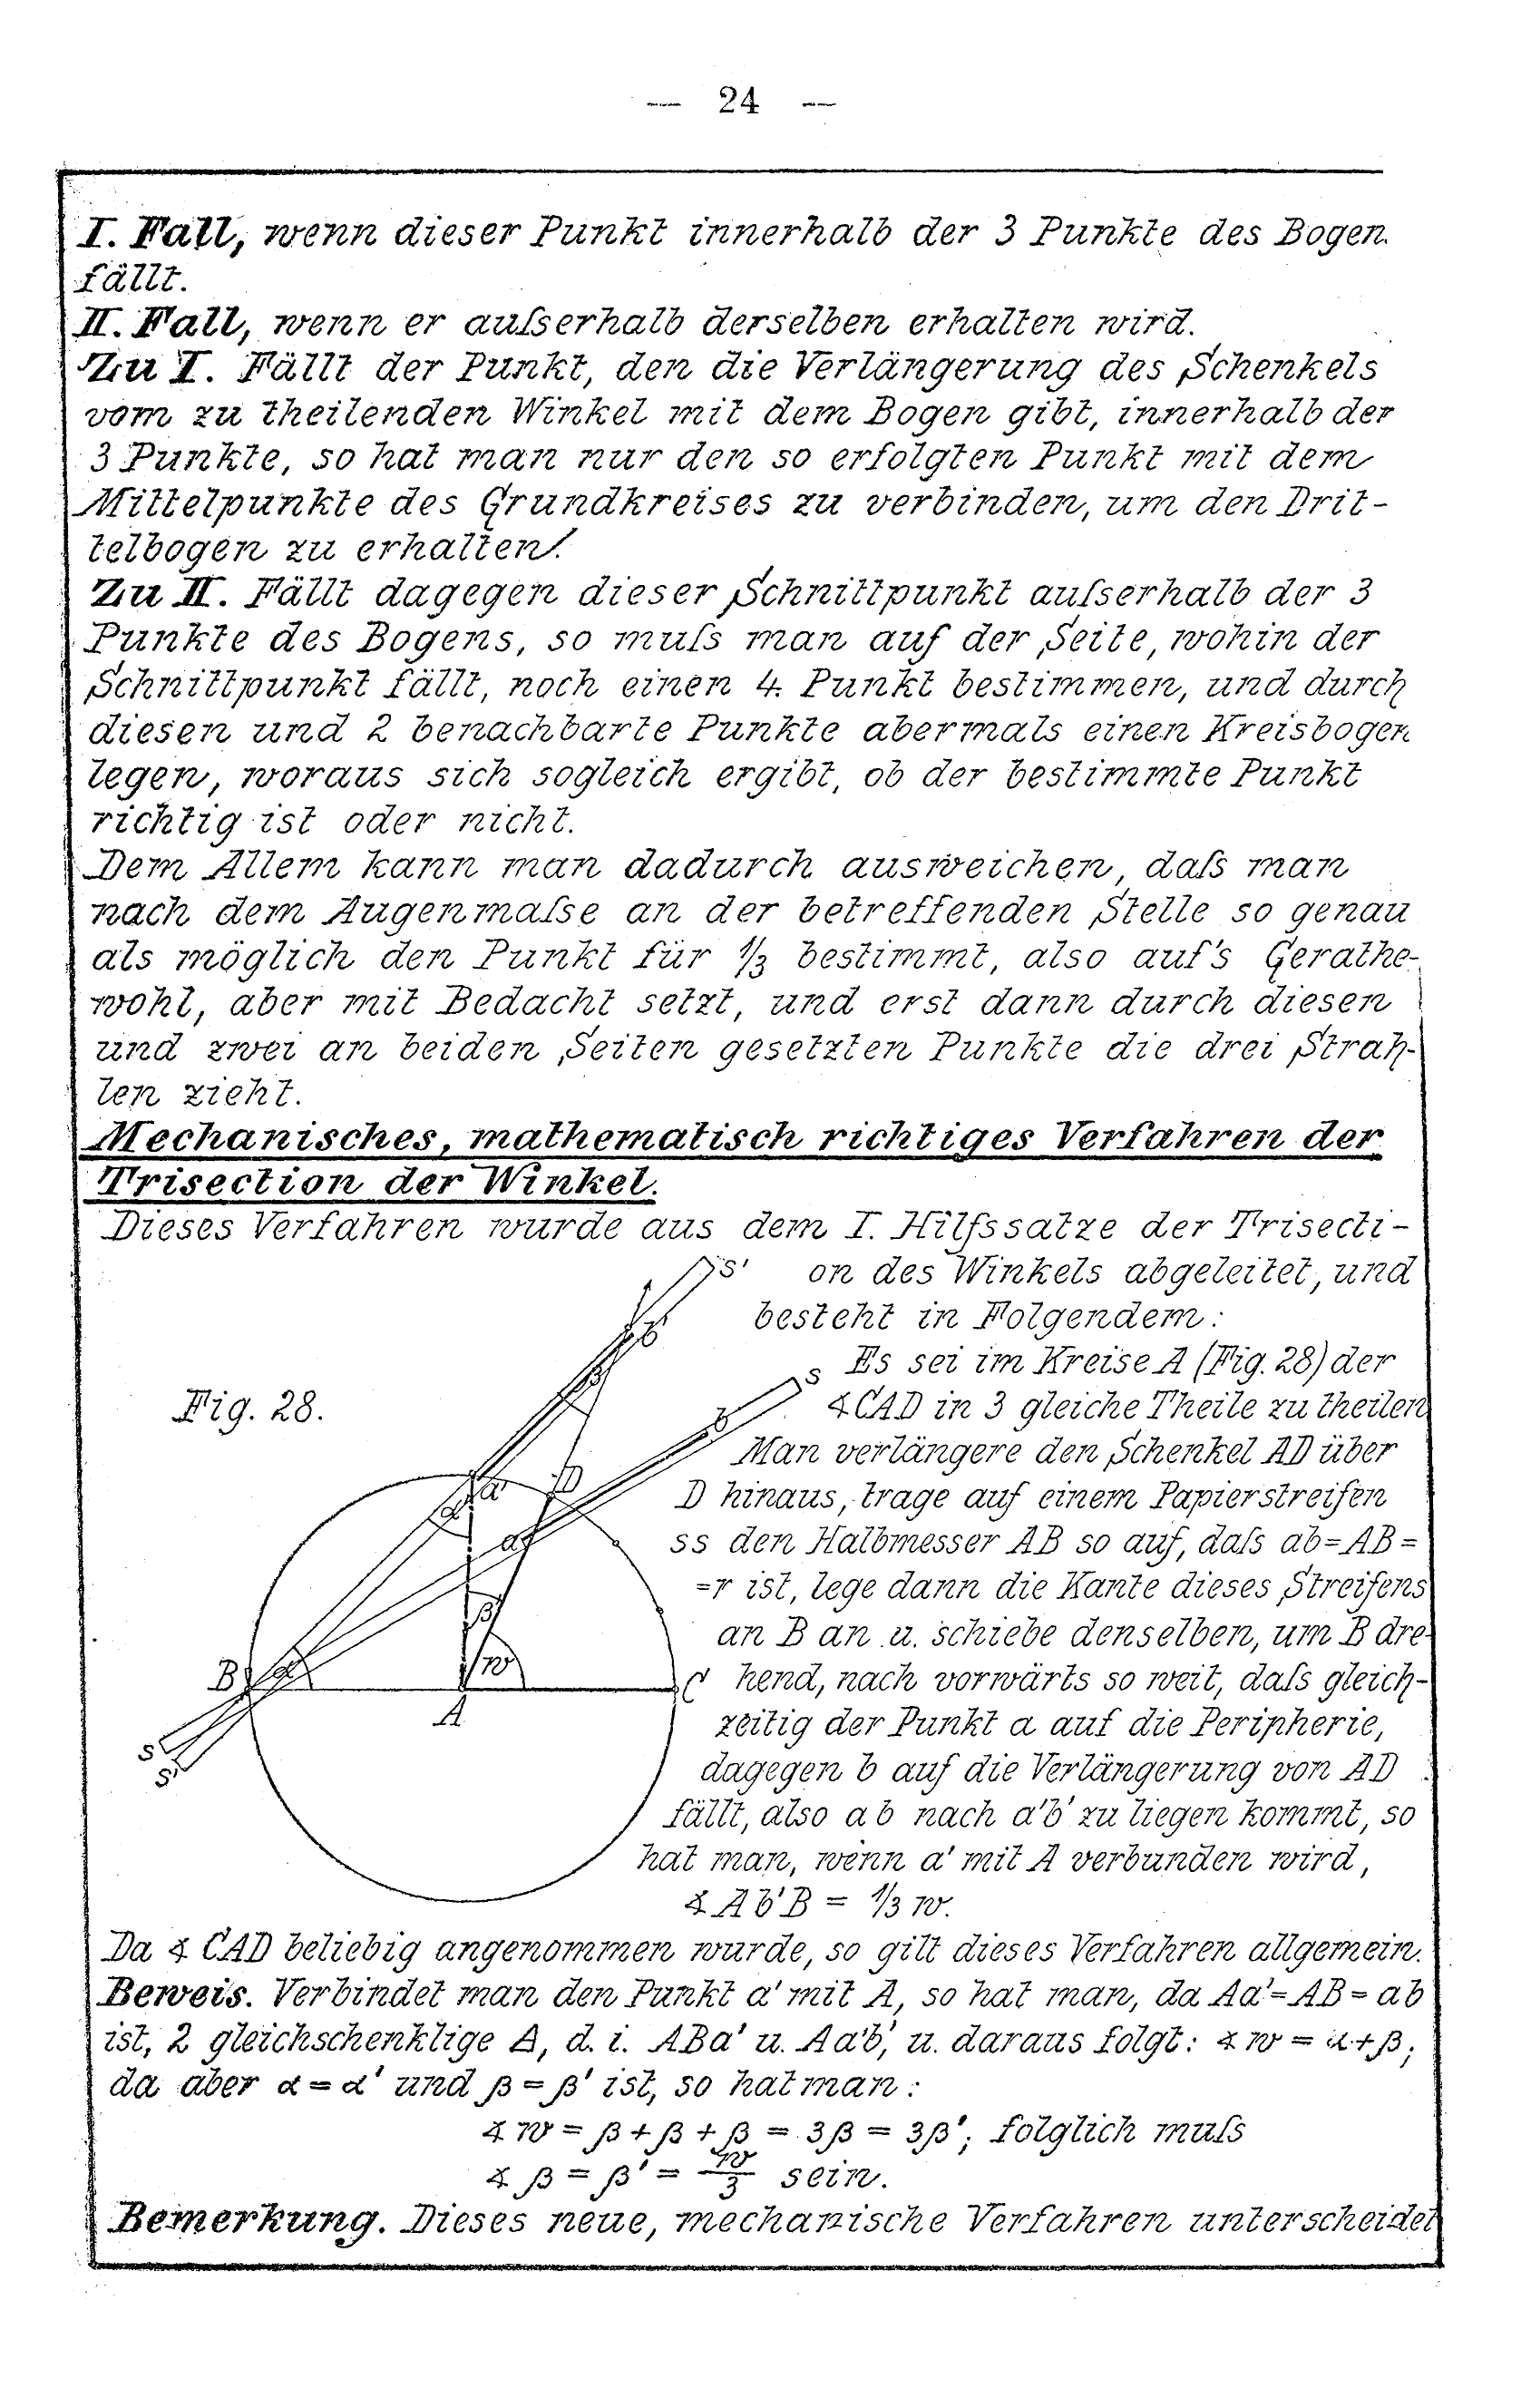 — 24 —
I. Fall, wenn dieser Punkt innerhalb der 3 Punkte des Bogen
fällt.
II. Fall, wenn er auſserhalb derselben erhalten wird.
Zu I. Fällt der Punkt, den die Verlängerung des Schenkels
vom zu theilenden Winkel mit dem Bogen gibt, innerhalb der
3 Punkte, so hat man nur den so erfolgten Punkt mit dem
Mittelpunkte des Grundkreises zu verbinden, um den Drit-
telbogen zu erhalten!
Zu II. Fällt dagegen dieser Schnittpunkt auſserhalb der 3
Punkte des Bogens, so muſs man auf der Seite, wohin der
Schnittpunkt fällt, noch einen 4. Punkt bestimmen, und durch
diesen und 2 benachbarte Punkte abermals einen Kreisbogen
legen, woraus sich sogleich ergibt, ob der bestimmte Punkt
richtig ist oder nicht.
Dem Allem kann man dadurch ausweichen, daſs man
nach dem Augenmaſse an der betreffenden Stelle so genau
als möglich den Punkt für 1/3 bestimmt, also auf's Gerathe-
wohl, aber mit Bedacht setzt, und erst dann durch diesen
und zwei an beiden Seiten gesetzten Punkte die drei Strah-
len zieht.
Mechanisches, mathematisch richtiges Verfahren der
Trisection der Winkel.
Dieses Verfahren wurde aus dem I. Hilfssatze der Trisecti-
on des Winkels abgeleitet, und
besteht in Folgendem:
Es sei im Kreise A (Fig. 28) der
∢CAD in 3 gleiche Theile zu theilen
Man verlängere den Schenkel AD über
D hinaus, trage auf einem Papierstreifen
ss den Halbmesser AB so auf, daſs ab=AB=
=r ist, lege dann die Kante dieses Streifens
an B an u. schiebe denselben, um B dre-
hend, nach vorwärts so weit, daſs gleich-
zeitig der Punkt a auf die Peripherie,
dagegen b auf die Verlängerung von AD
fällt, also ab nach a'b' zu liegen kommt, so
hat man, wenn a' mit A verbunden wird,
∢Ab'B = 1/3 w.
Fig. 28.
s'
b'
β
s
b
D
a'
α'
a
β'
w
B
α
A
C
s
s'
Da ∢ CAD beliebig angenommen wurde, so gilt dieses Verfahren allgemein.
Beweis. Verbindet man den Punkt a' mit A, so hat man, da Aa'=AB=ab
ist, 2 gleichschenklige Δ, d. i. ABa' u. Aa'b', u. daraus folgt: ∢ w = α+β;
da aber α=α' und β=β' ist, so hat man:
∢ w = β+β+β = 3β = 3β'; folglich muſs
∢ β = β' = w/3 sein.
Bemerkung. Dieses neue, mechanische Verfahren unterscheidet